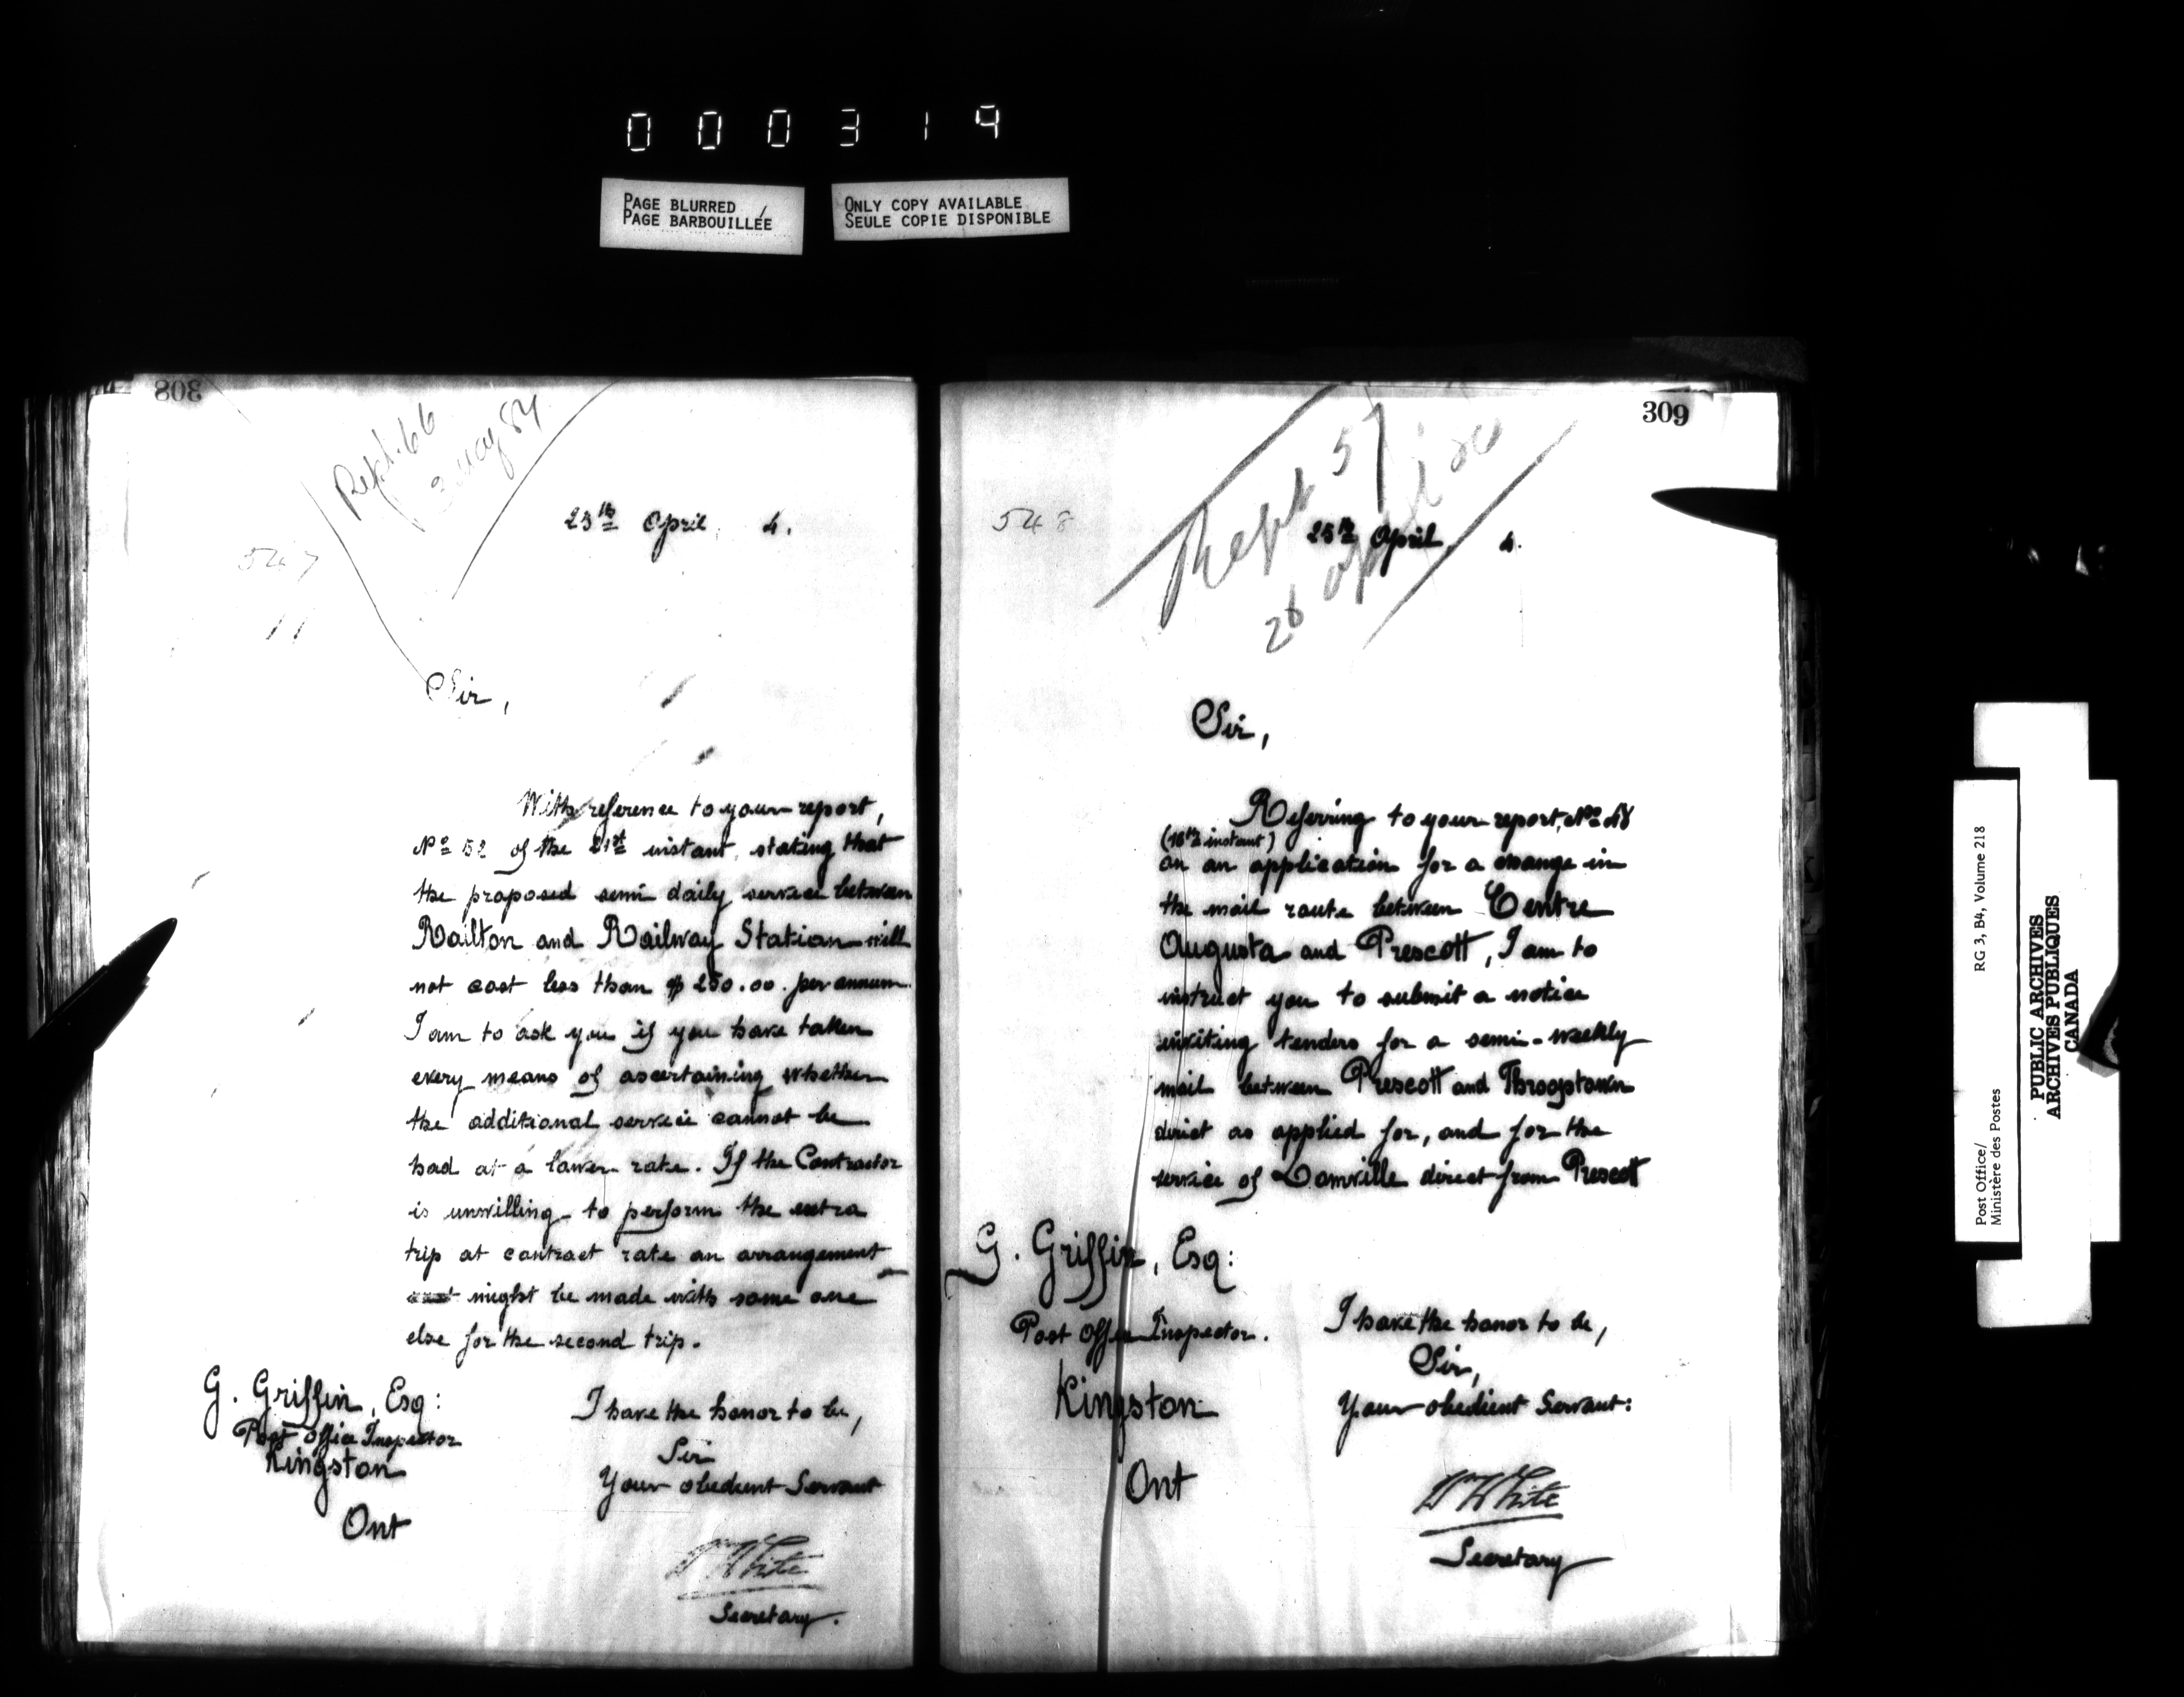 000319
PAGE BLURRED
PAGE BARBOUILLÉE
ONLY COPY AVAILABLE
SEULE COPIE DISPONIBLE
308
Rept. 66
2 May 84
547
25th April, 4.
Sir,
With reference to your report,
No 52 of the 21st instant, stating that
the proposed semi daily service between
Railton and Railway Station will
not cost less than $250.00. per annum.
I am to ask you if you have taken
every means of ascertaining whether
the additional service cannot be
had at a lower rate. If the Contractor
is unwilling to perform the extra
trip at contract rate an arrangement
might be made with some one
else for the second trip.
G. Griffin, Esq:
Post Office Inspector
Kingston
Ont
I have the honor to be,
Sir
Your obedient Servant
W White
Secretary.
309
548
Rept 57
26 April 84
25th April, 4.
Sir,
Referring to your report, No 48
(16th instant)
on an application for a change in
the mail route between Centre
Augusta and Prescott, I am to
instruct you to submit a notice
inviting tenders for a semi-weekly
mail between Prescott and Throoptown
direct as applied for, and for the
service of Domville direct from Prescott
G. Griffin, Esq:
Post Office Inspector.
Kingston
Ont
I have the honor to be,
Sir,
Your obedient Servant:
W White
Secretary
Post Office/
Ministère des Postes
RG 3, B4, Volume 218
PUBLIC ARCHIVES
ARCHIVES PUBLIQUES
CANADA